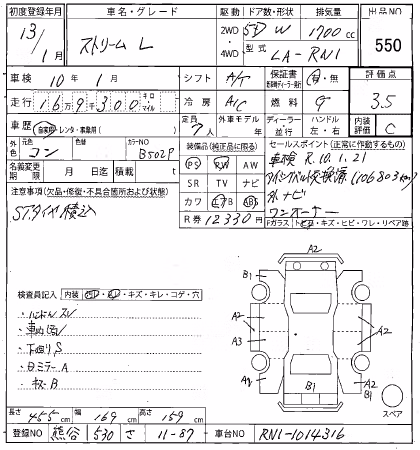 初度登録年月 車名・グレード 駆動 ドア数・形状 排気量 出品NO
13/1月 ストリーム L 2WD 4WD 5D W 1700cc 550
型式 LA-RN1
車検 10年1月 シフト A/T 保証書 有・無 評価点
走行 16万9千300 キロ マイル 冷房 A/C 燃料 g 3.5
車歴 自家用・レンタ・事業用( ) 定員 7人 外車モデル 年 ディーラー 並行 ハンドル 左・右 内装 C
外色 元色 コン 色替 カラーNO B502P
装備品(純正品に限る) セールスポイント(正常に作動するもの)
名義変更期限 月 日迄 積載 t
PS PW AW 車検 R.10.1.21
SR TV ナビ タイミングベルト交換済(106803km)
注意事項(欠品・修復・不具合箇所および状態)
カワ エアB ABS 外ナビ
STタイヤ積込 R券 12330円 ワンオーナー
Fガラス
A2
B1
検査員記入 内装 キズ・キレ・コゲ・穴
・ハンドルスレ
・下回りS
・Dミラー A
・キズ・B
A2
A3
A2
A2
B1
B1
スペア
長さ 455cm 幅 169cm 高さ 159cm
登録NO 熊谷 530 さ 11-87 車台NO RN1-1014316